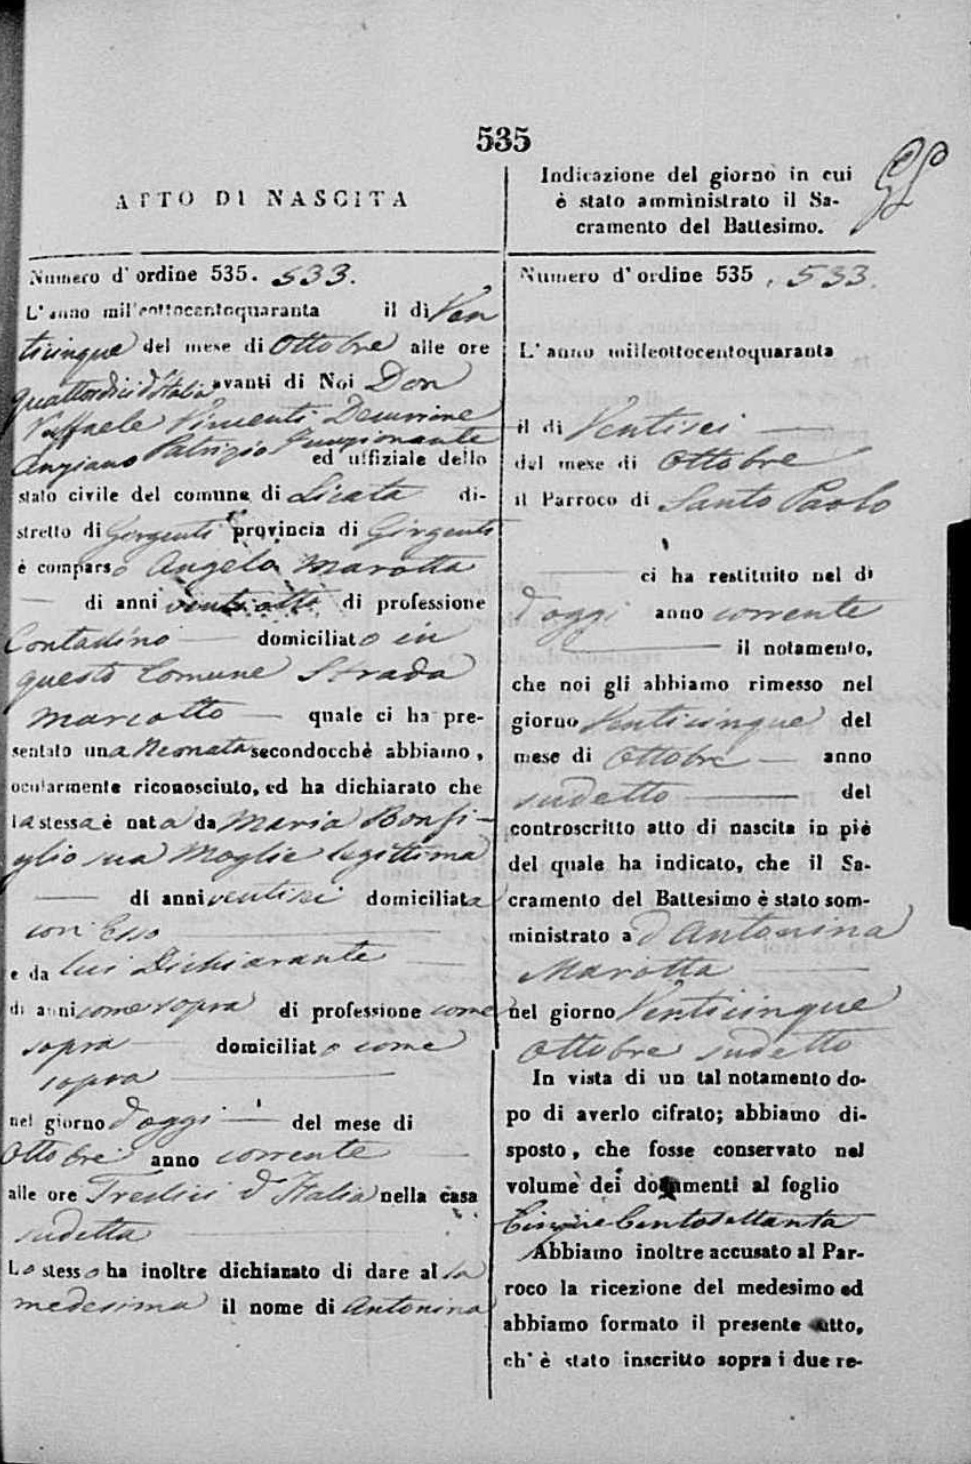 535
ATTO DI NASCITA
Numero d'ordine 535. 533.
L'anno mil'eottocentoquaranta il dì Ven
ticinque del mese di Ottobre alle ore
quattordici d'Italia avanti di Noi Don
Raffaele Vincenti Decurione
Anziano Patrizio Funzionante
ed uffiziale dello
stato civile del comune di Licata di-
stretto di Girgenti provincia di Girgenti
è comparso Angelo Marotta
di anni ventiotto di professione
Contadino domiciliato in
questo Comune Strada
Marcotto quale ci ha pre-
sentato una Neonata secondocchè abbiamo,
ocularmente riconosciuto, ed ha dichiarato che
la stessa è nata da Maria Bonfi-
glio sua Moglie legittima
di anni ventisei domiciliata
con Esso
e da lui Dichiarante
di anni come sopra di professione come
sopra domiciliato come
sopra
nel giorno d'oggi del mese di
Ottobre anno corrente
alle ore Tredici d'Italia nella casa
sudetta
Lo stesso ha inoltre dichiarato di dare alla
medesima il nome di Antonina
Indicazione del giorno in cui
è stato amministrato il Sa-
cramento del Battesimo.
Numero d'ordine 535, 533.
L'anno milleottocentoquaranta
il dì Ventisei
del mese di Ottobre
il Parroco di Santo Paolo
ci ha restituito nel dì
d'oggi anno corrente
il notamento,
che noi gli abbiamo rimesso nel
giorno Venticinque del
mese di Ottobre anno
sudetto del
controscritto atto di nascita in piè
del quale ha indicato, che il Sa-
cramento del Battesimo è stato som-
ministrato a d'Antonina
Marotta
nel giorno Venticinque
Ottobre sudetto
In vista di un tal notamento do-
po di averlo cifrato; abbiamo di-
sposto, che fosse conservato nel
volume dei documenti al foglio
Cinque Centosettanta
Abbiamo inoltre accusato al Par-
roco la ricezione del medesimo ed
abbiamo formato il presente atto,
ch'è stato inscritto sopra i due re-